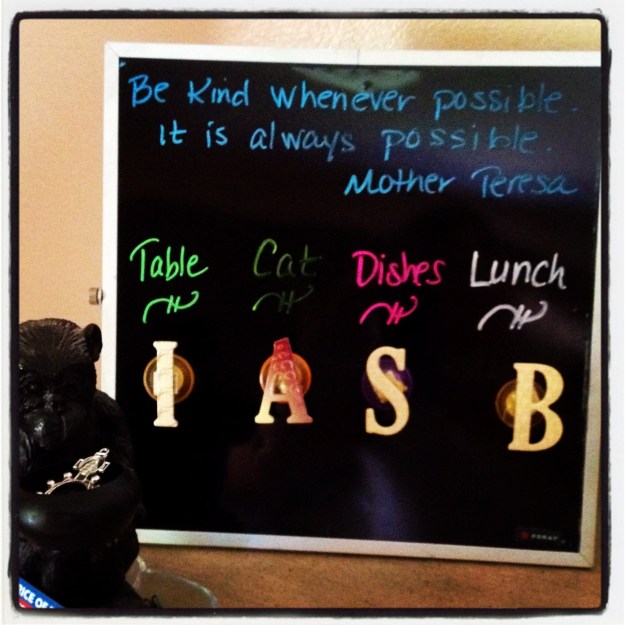 Be Kind whenever possible.
It is always possible.
Mother Teresa
Table Cat Dishes Lunch
I A S B